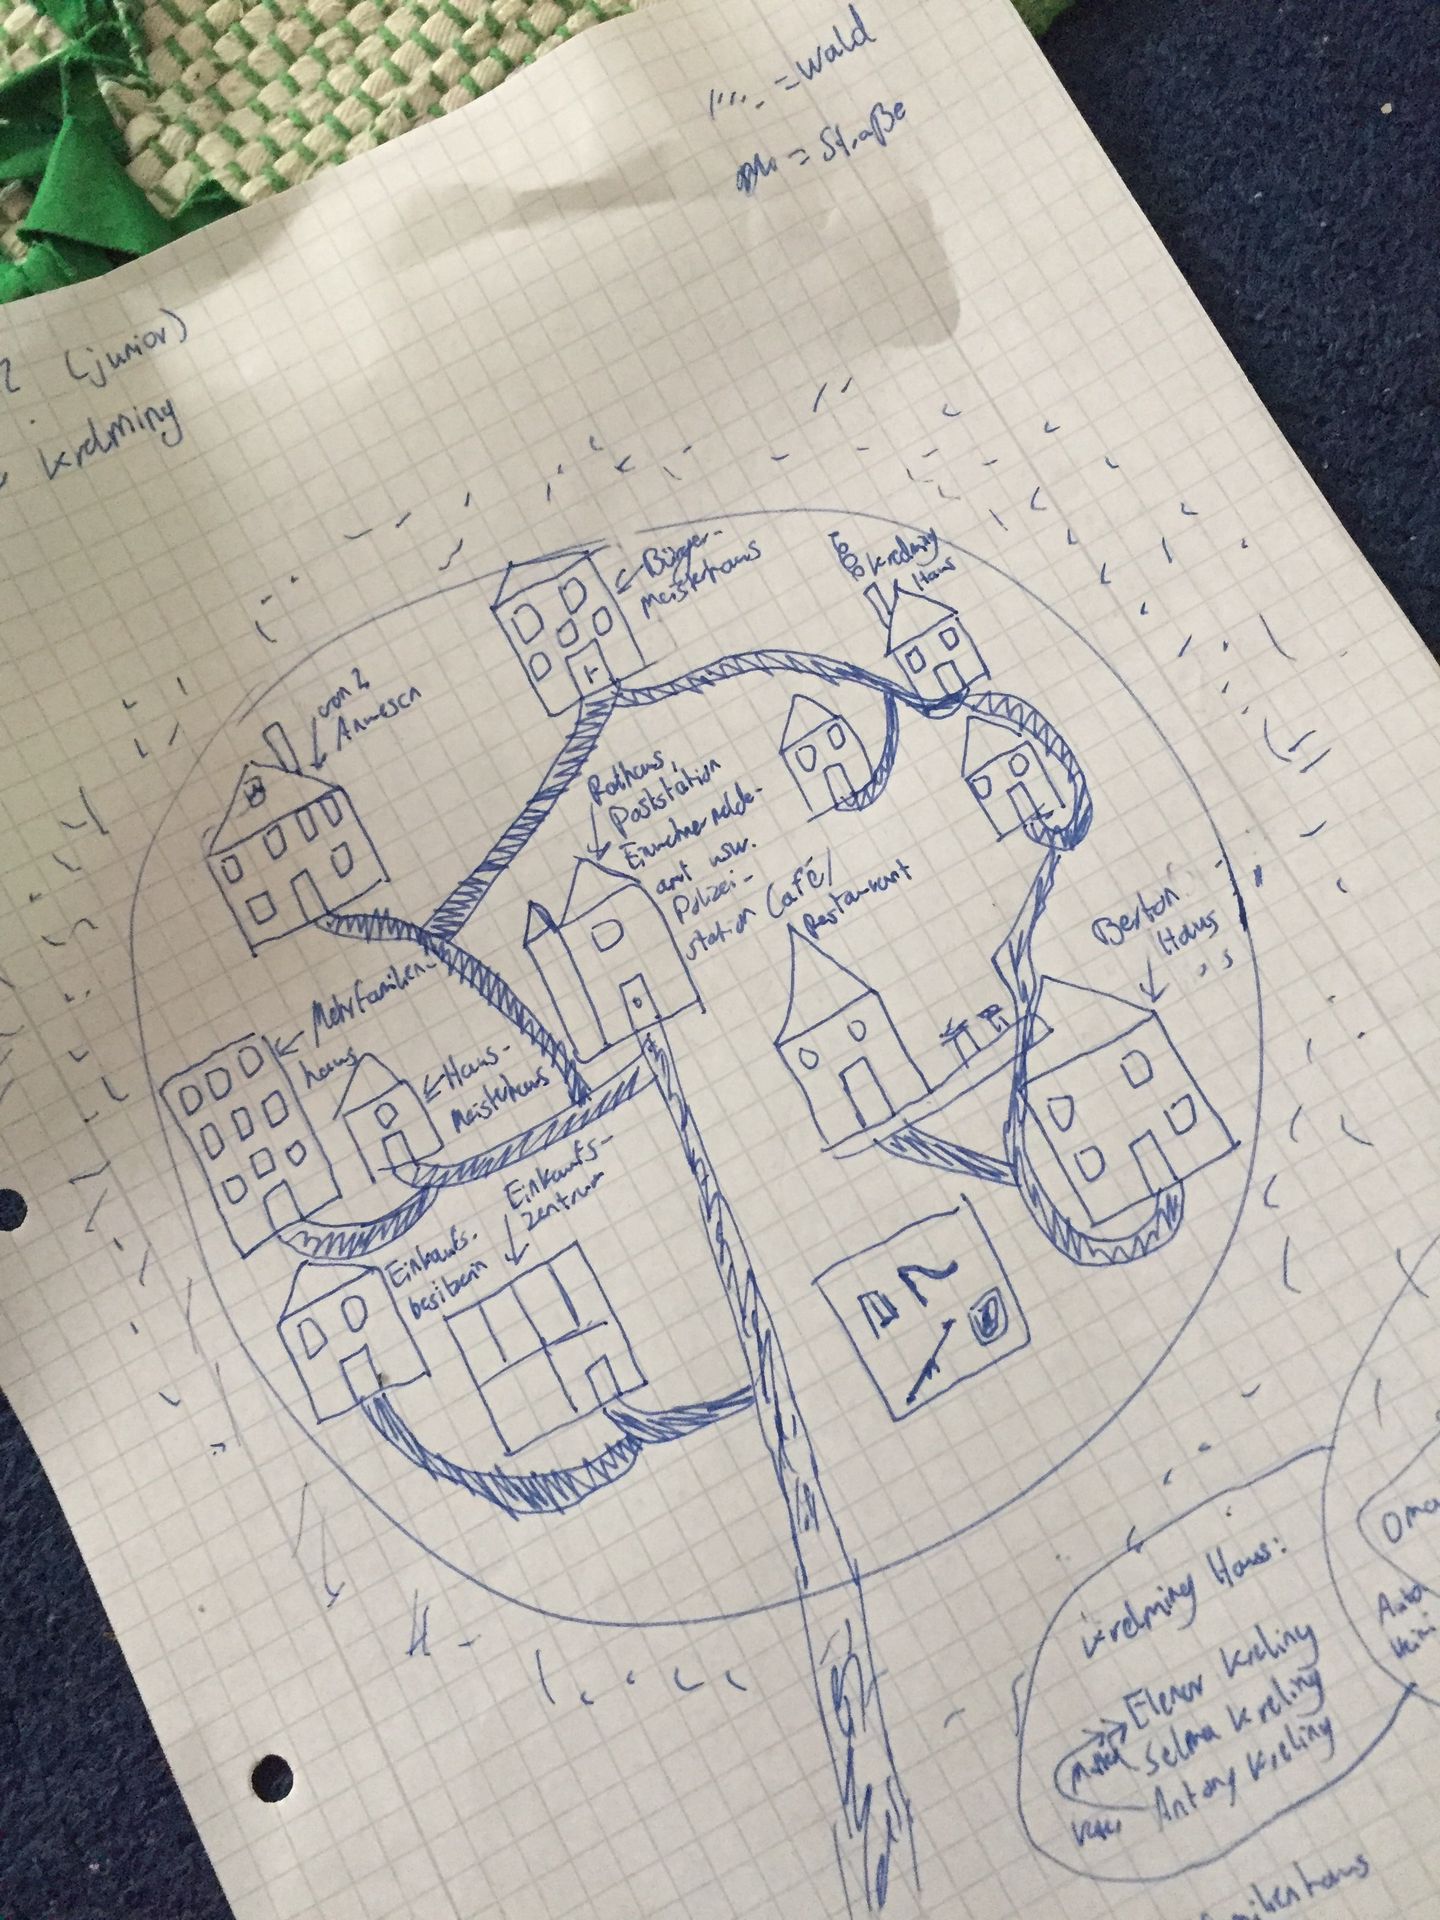 = Wald
= Straße
(junior)
Krelming
Bürger-
meisterhaus
Krelming
Haus
von 2
Anwesen
Rathaus,
Poststation
Einwohnermelde-
amt usw.
Polizei-
station
Café/
Restaurant
Berton
Haus
Mehrfamilien-
haus
Haus-
meisterhaus
Einkaufs-
zentrum
Einkaufs-
besitzerin
Krelming Haus:
Elenor Kreling
Selma Kreling
Antony Kreling
Oma